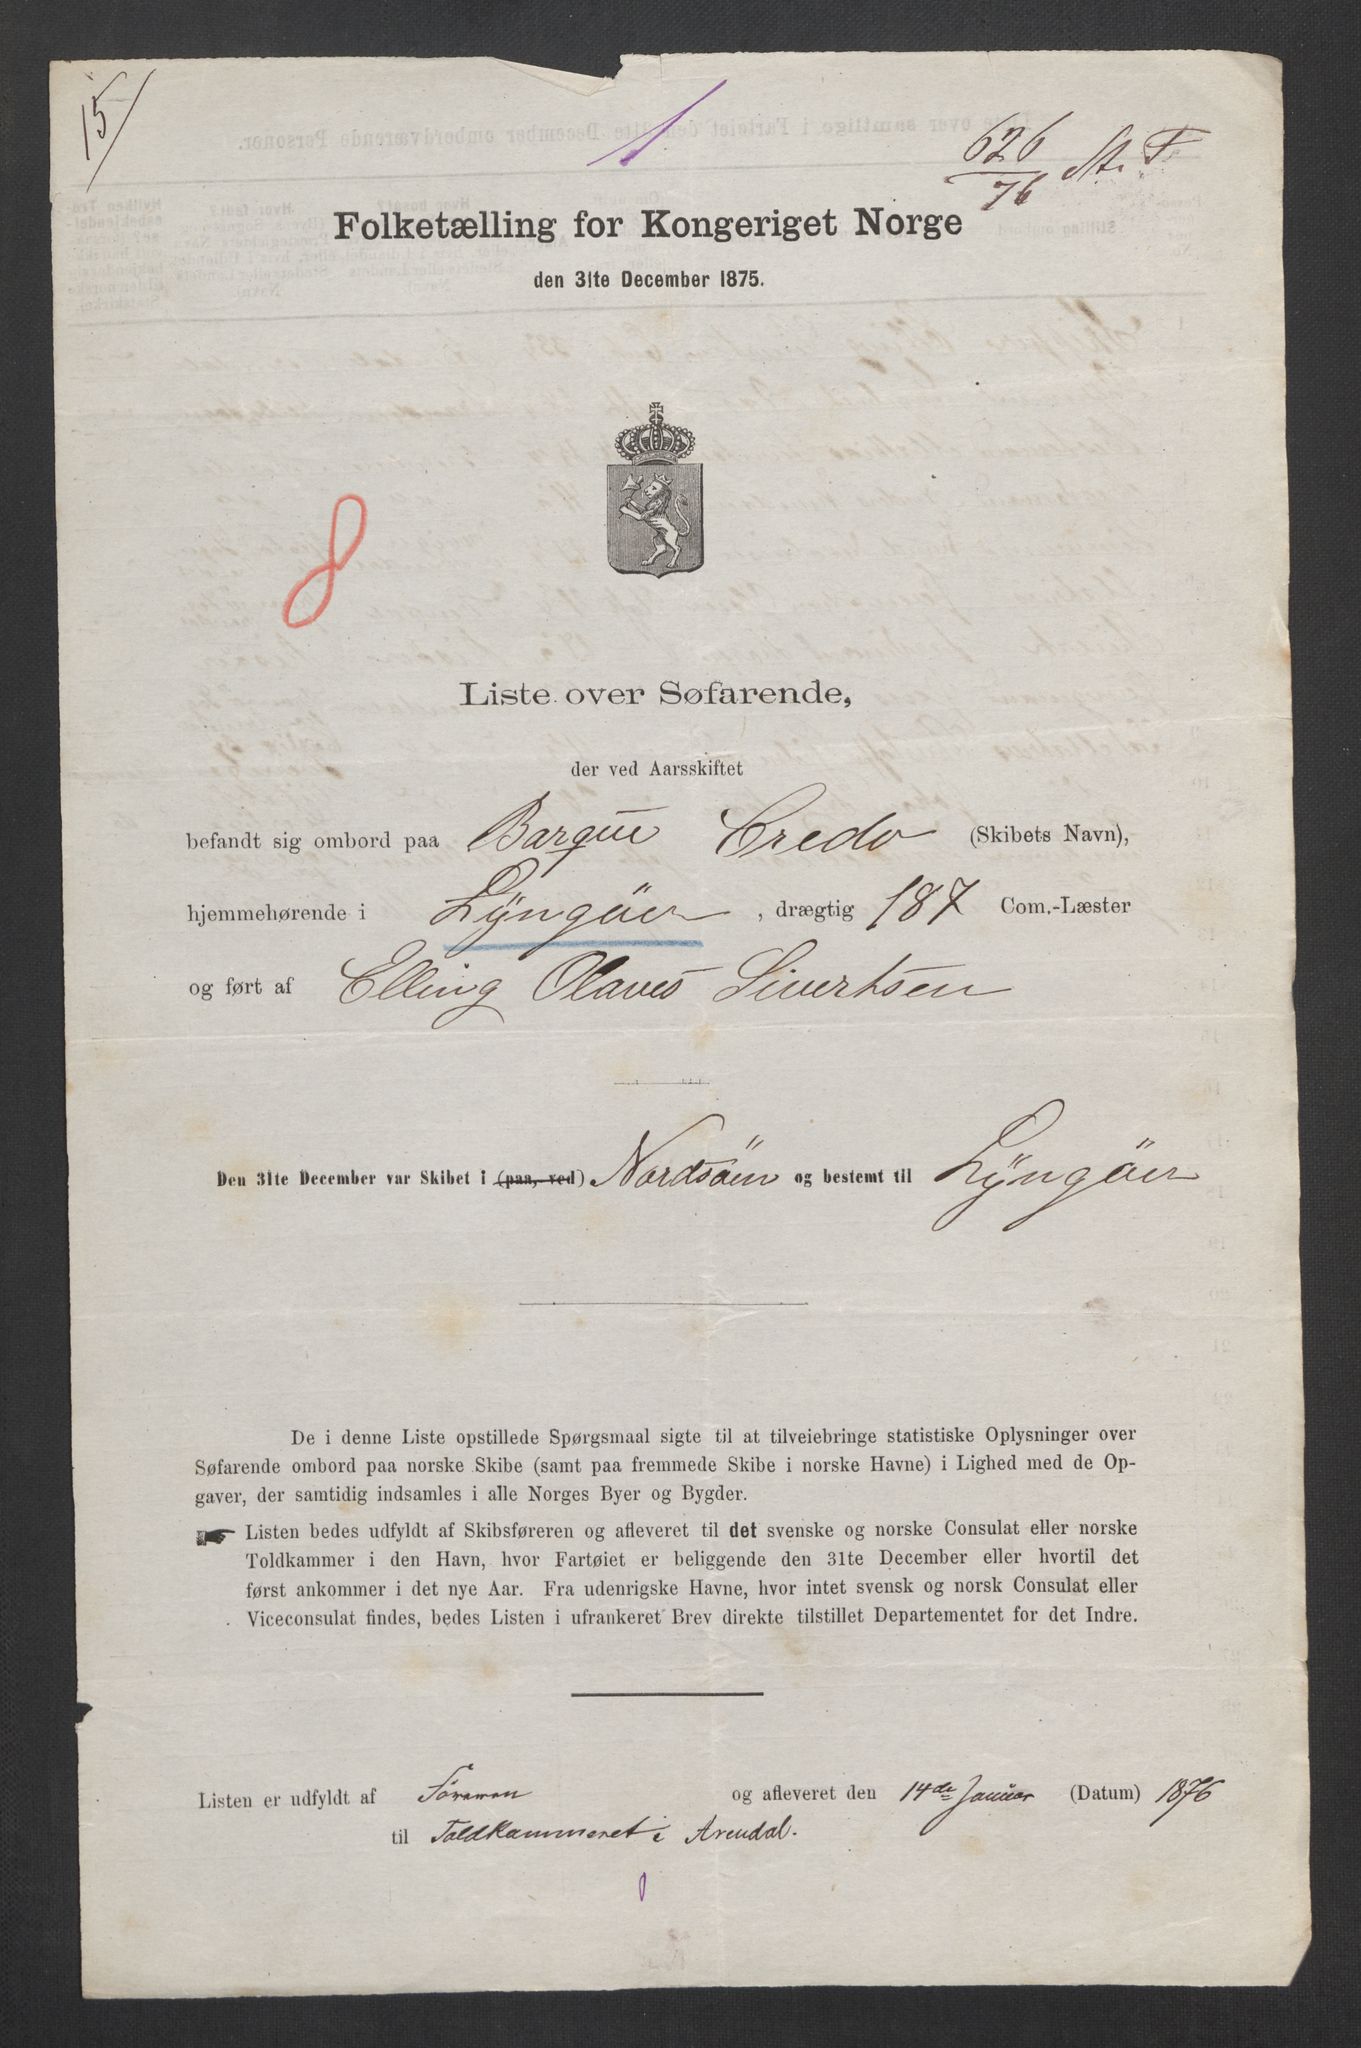 15/
626
76 St. F
Folketælling for Kongeriget Norge
den 31te December 1875.
8
Liste over Søfarende,
der ved Aarsskiftet
befandt sig ombord paa Barque Credo (Skibets Navn),
hjemmehørende i Lÿngöer, drægtig 187 Com.-Læster
og ført af Elling Olaves Sivertsen
Den 31te December var Skibet i (paa, ved) Nordsöen og bestemt til Lÿngöer
De i denne Liste opstillede Spørgsmaal sigte til at tilveiebringe statistiske Oplysninger over
Søfarende ombord paa norske Skibe (samt paa fremmede Skibe i norske Havne) i Lighed med de Op-
gaver, der samtidig indsamles i alle Norges Byer og Bygder.
Listen bedes udfyldt af Skibsføreren og afleveret til det svenske og norske Consulat eller norske
Toldkammer i den Havn, hvor Fartøiet er beliggende den 31te December eller hvortil det
først ankommer i det nye Aar. Fra udenrigske Havne, hvor intet svensk og norsk Consulat eller
Viceconsulat findes, bedes Listen i ufrankeret Brev direkte tilstillet Departementet for det Indre.
Listen er udfyldt af og afleveret den 14de Januar (Datum) 1876
til Toldkammeret i Arendal.